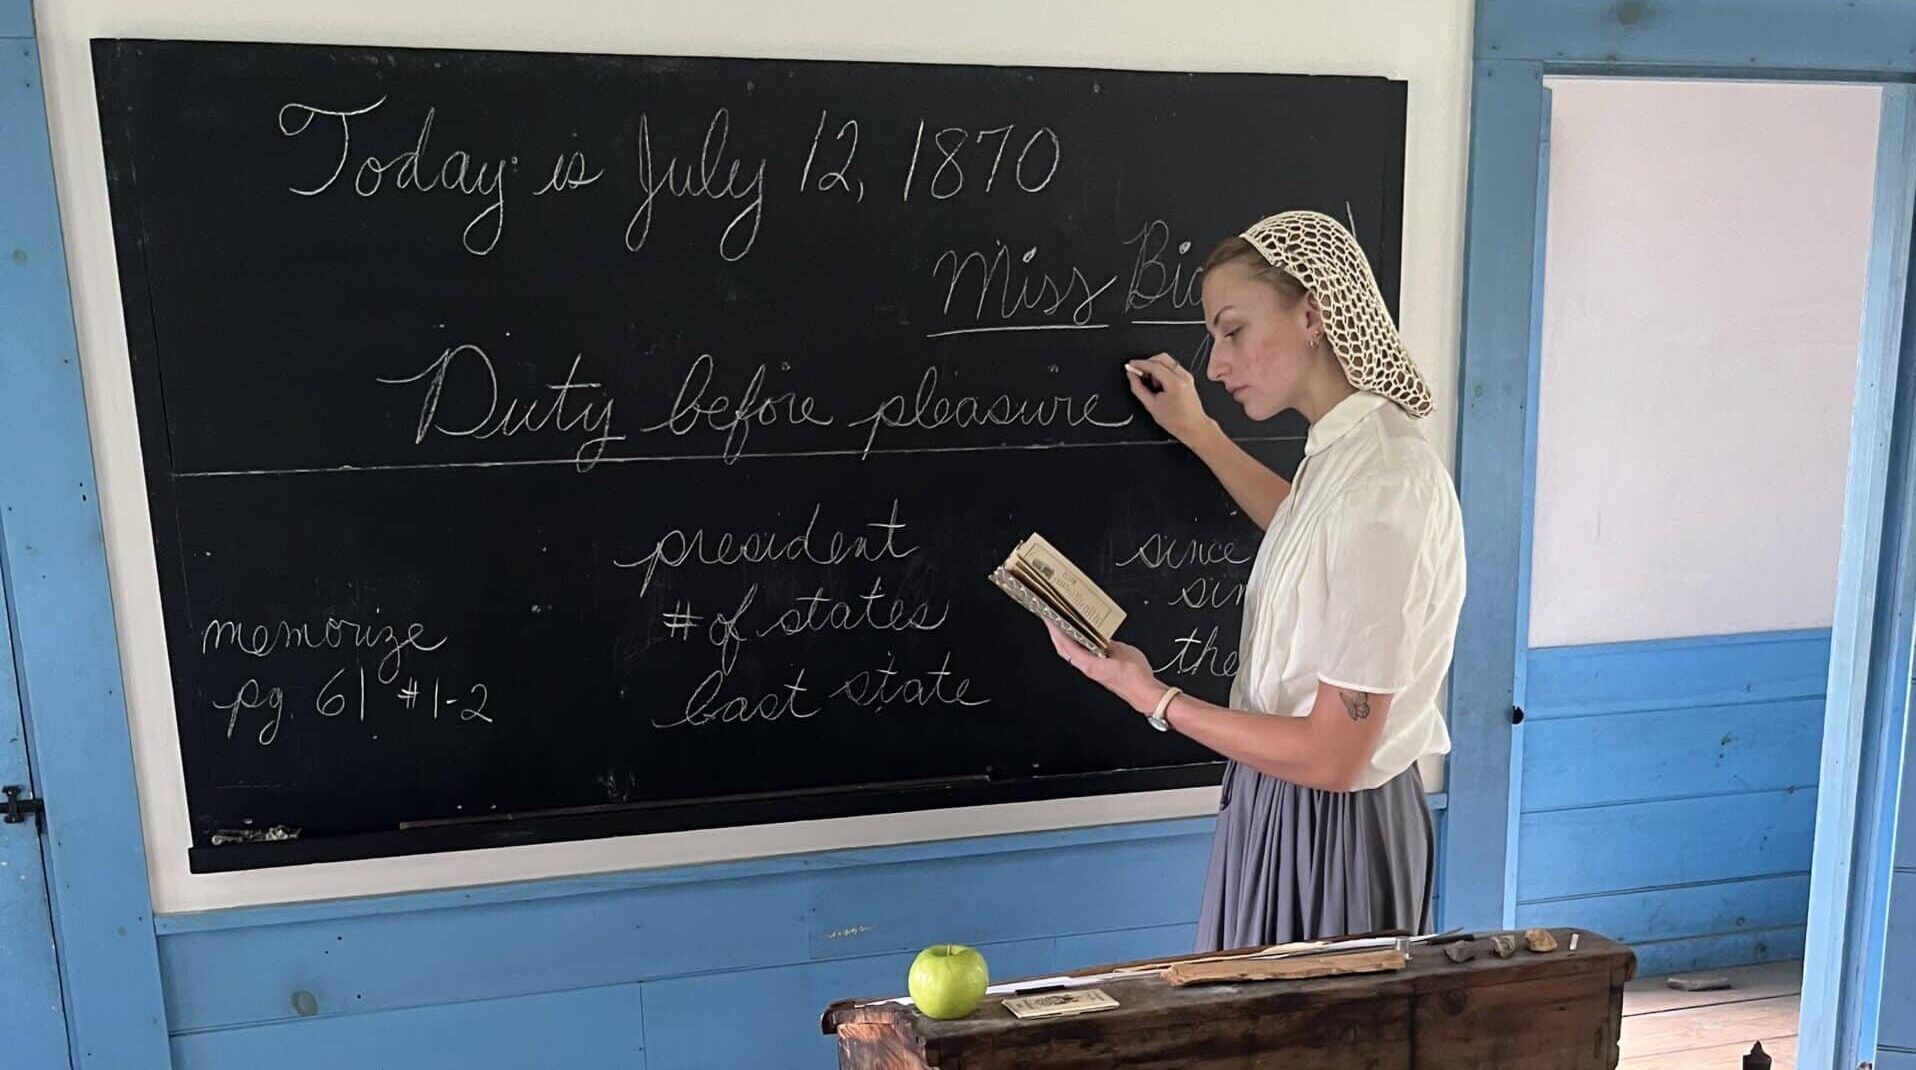 Today is July 12, 1870
Miss
Duty before pleasure
memorize
pg. 61 #1-2
president
# of states
last state
since
the